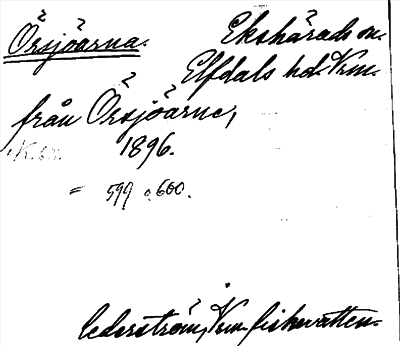 Örsjöarna. Ekshärads sn.
Elfdals hd. Vrm.
från Örsjöarne,
1896.
= 599 o. 600.
Cederström, Vrm. fiskevatten.